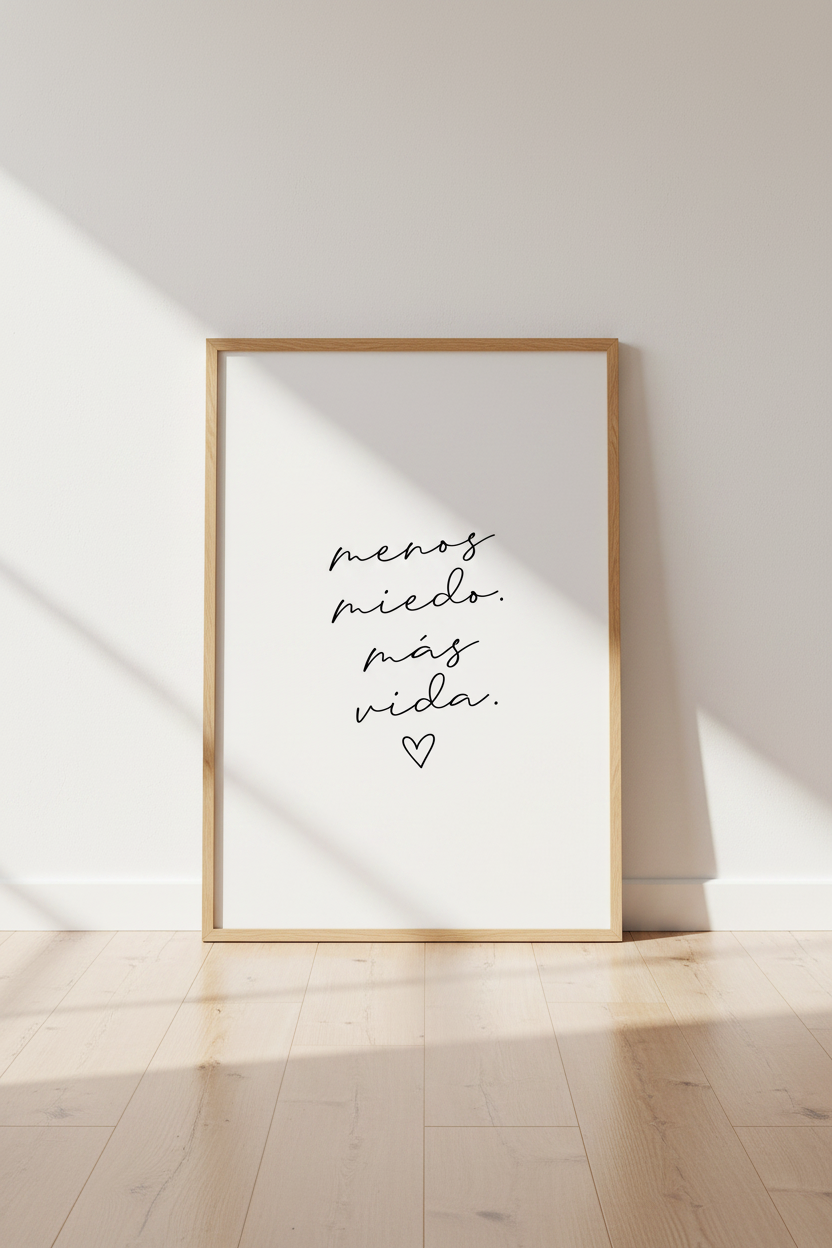 menos
miedo.
más
vida.